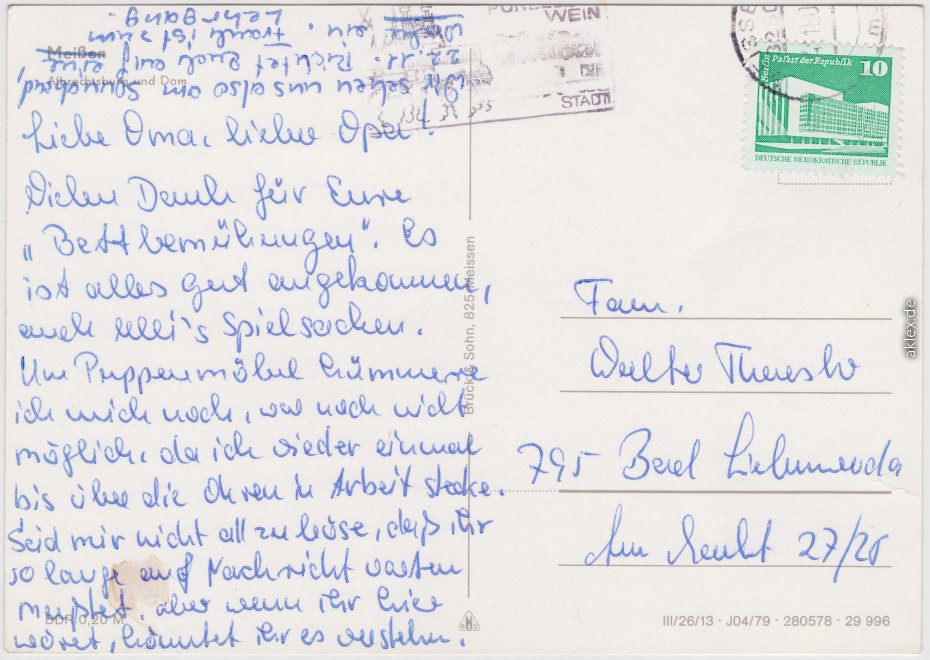 Meißen
Albrechtsburg und Dom
Liebe Oma, lieber Opa!
Vielen Dank für Eure
„Bettbemühungen". Es
ist alles gut angekommen,
auch Ulli's Spielsachen.
Um Puppenmöbel kümmere
ich mich noch, war noch nicht
möglich, da ich wieder einmal
bis über die Ohren in Arbeit stecke.
Seid mir nicht allzu böse, daß ihr
so lange auf Nachricht warten
mußtet, aber wenn ihr hier
wäret, könntet ihr es verstehen.
Wir sehen uns also am Sonnabend,
22.11. Richtet Euch auf
ein. Frank ist zum
Lehrgang.
DDR 0,20 M
Brück & Sohn, 825 Meissen
WEIN
DIE
STADT
Berlin Palast der Republik
10
DEUTSCHE DEMOKRATISCHE REPUBLIK
Fam.
Walter
795 Bad Liebenwerda
Am 27/28
III/26/13 · J04/79 · 280578 · 29 996
aklex.de